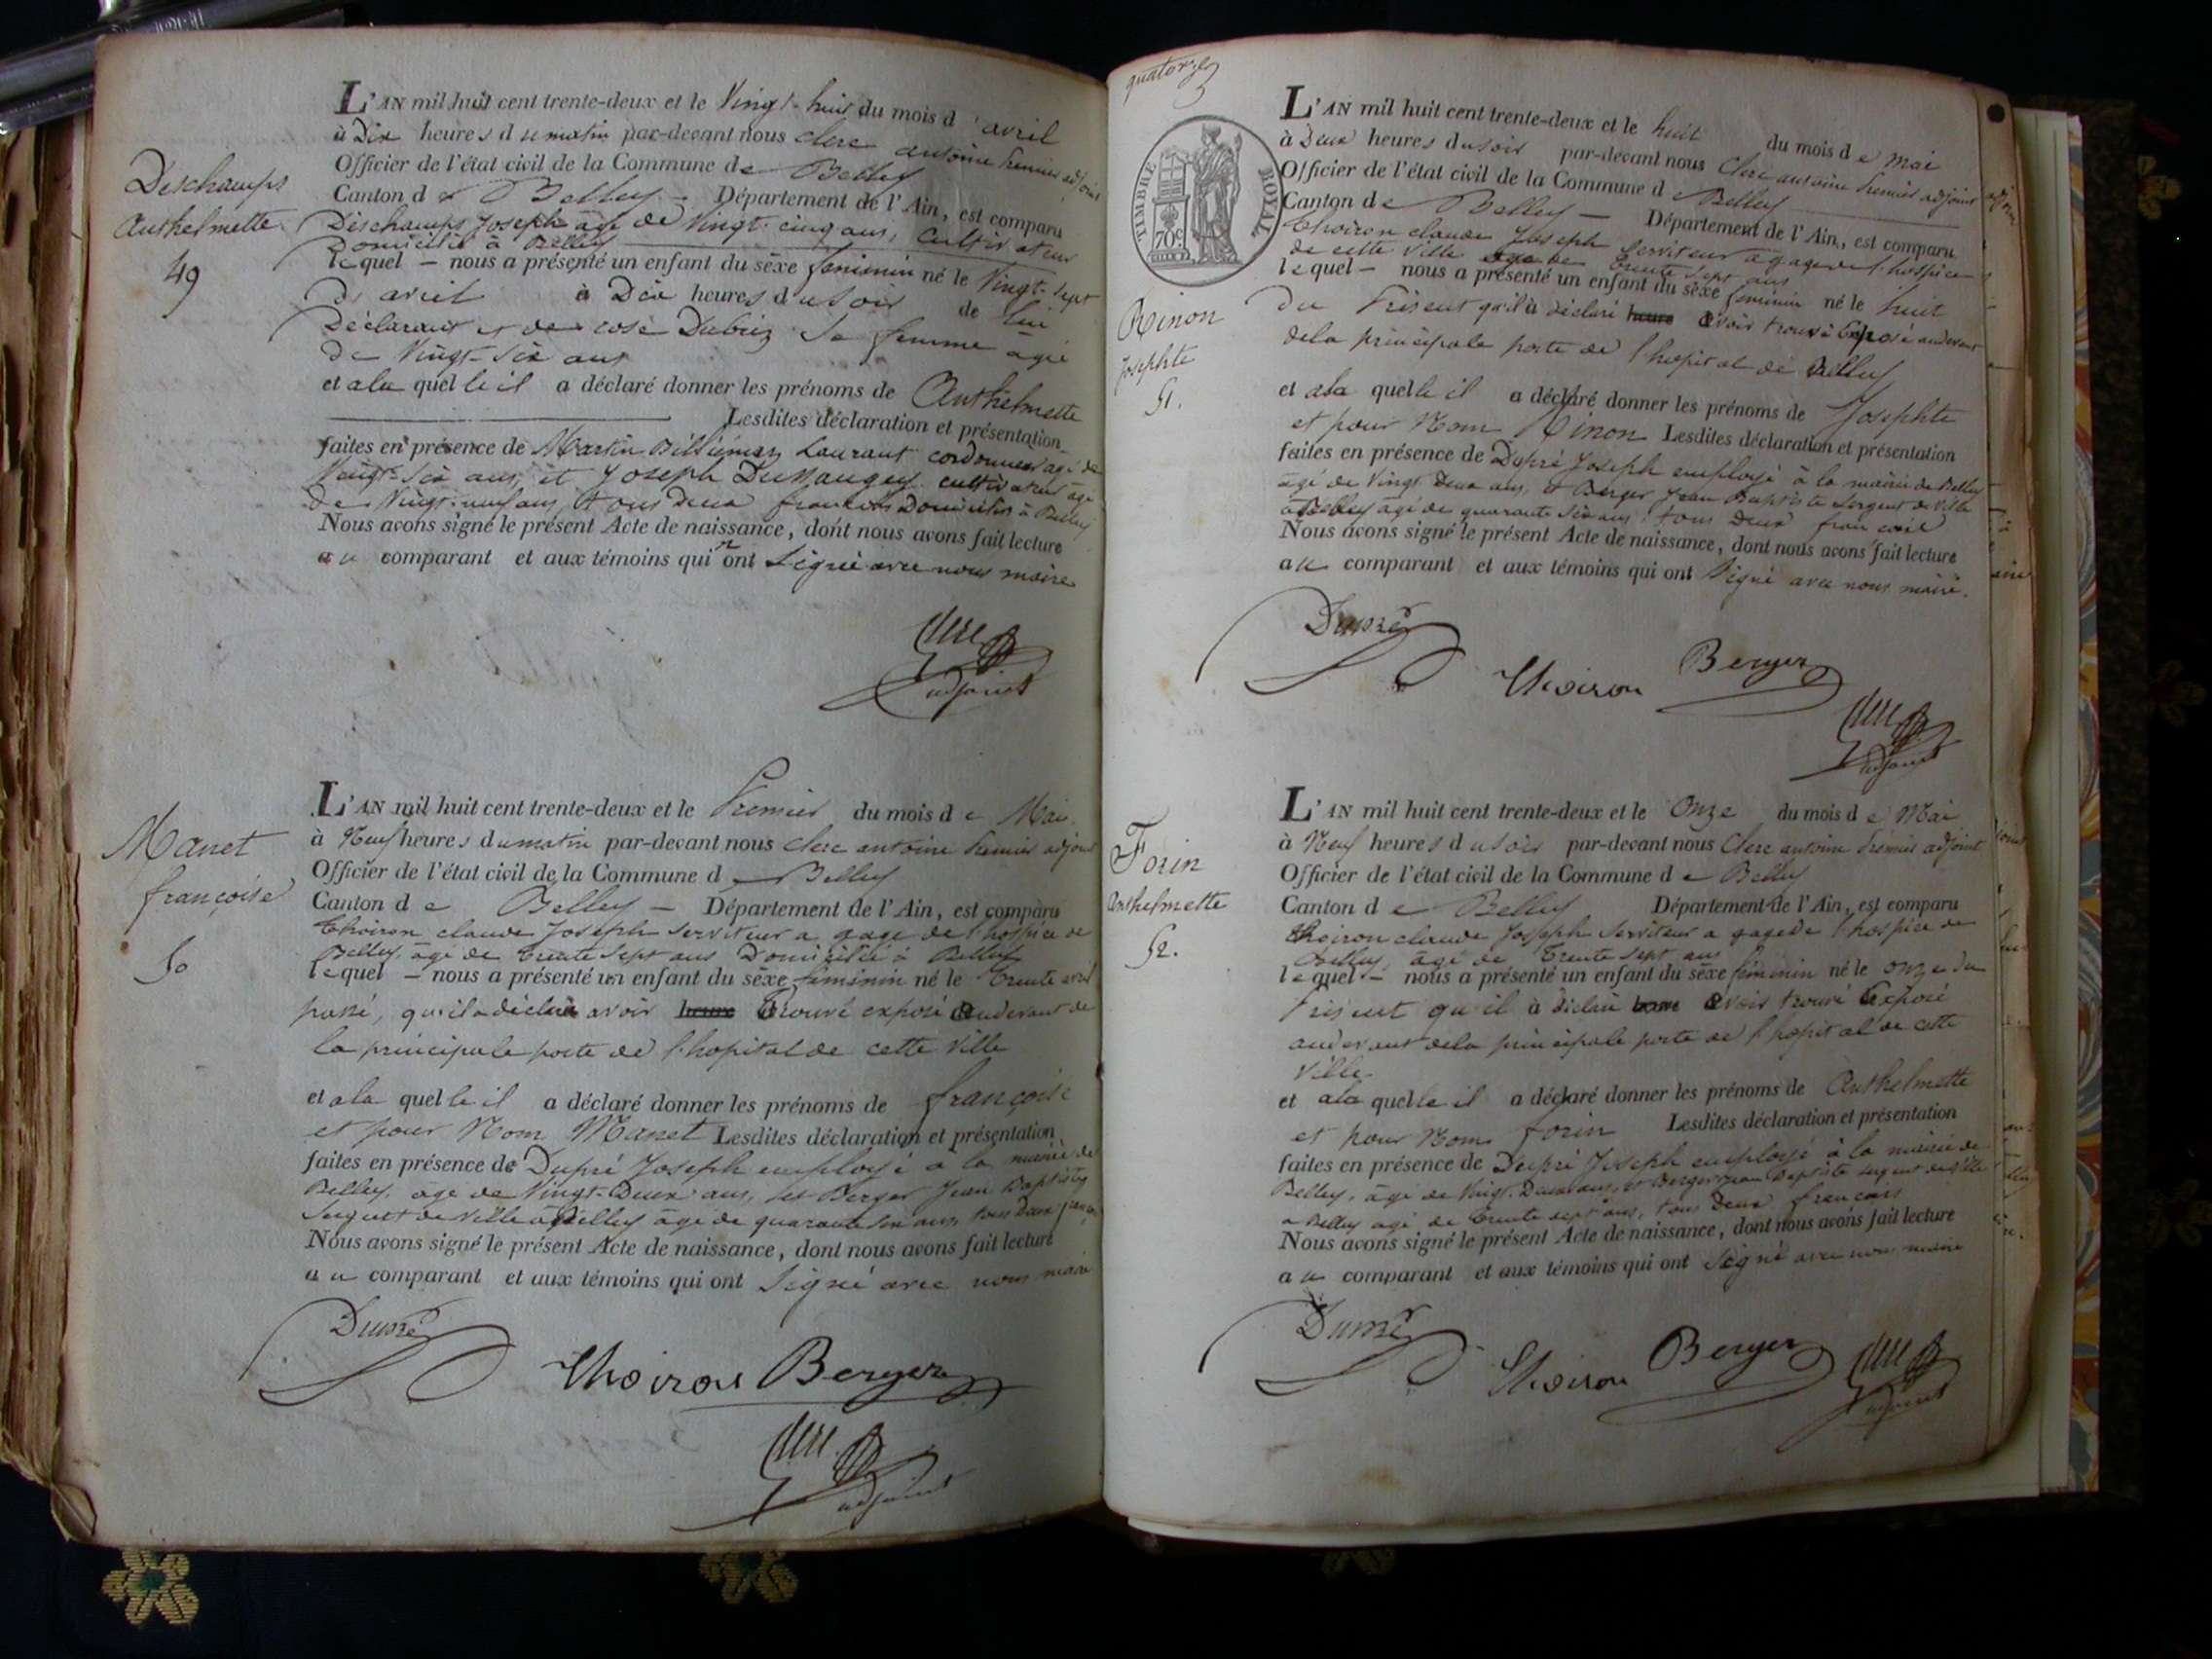 Deschamps
Anthelmette
49
L'AN mil huit cent trente-deux et le Vingt-huit du mois d'avril
à Dix heures du matin par-devant nous Clerc antoine Premier adjoint
Officier de l'état civil de la Commune de Belley
Canton de Belley — Département de l'Ain, est comparu
Deschamps Joseph âgé de Vingt-cinq ans, Cultivateur
Domicilié à Belley
lequel — nous a présenté un enfant du sèxe feminin né le Vingt-sept
D'avril à Dix heures du soir de lui
Déclarant et de rose sa femme âgé
de Vingt-six ans
et a la quelle il a déclaré donner les prénoms de Anthelmette
Lesdites déclaration et présentation
faites en présence de Martin Billiémaz Laurant cordonnier âgé de
Vingt-six ans, et Joseph cultivateur âgé
de Vingt-neuf ans, tous deux francois Domiciliés à Belley
Nous avons signé le présent Acte de naissance, dont nous avons fait lecture
au comparant et aux témoins qui n'ont Signé avec nous maire
Clerc
adjoint
Manet
françoise
50
L'AN mil huit cent trente-deux et le Premier du mois de Mai
à Neuf heures du matin par-devant nous Clerc antoine Premier adjoint
Officier de l'état civil de la Commune de Belley
Canton de Belley — Département de l'Ain, est comparu
Thoiron claude Joseph serviteur a gage de l'hospice de
Belley, âgé de trente sept ans Domicilié à Belley
lequel — nous a présenté un enfant du sèxe feminin né le Trente avril
passé, qu'il a déclaré avoir heure trouvé exposé audevant de
la principale porte de l'hopital de cette ville
et a la quelle il a déclaré donner les prénoms de françoise
et pour Nom Manet Lesdites déclaration et présentation
faites en présence de Dupré Joseph employé a la mairie de
Belley, âgé de Vingt-Deux ans, et Berger Jean Baptiste
Sergent de Ville à Belley âgé de quarante six ans, tous Deux francois
Nous avons signé le présent Acte de naissance, dont nous avons fait lecture
au comparant et aux témoins qui ont Signé avec nous maire
Dupré
Thoiron Berger
Clerc
adjoint
quatorze
TIMBRE ROYAL
70c
Rinon
Josephte
51.
L'AN mil huit cent trente-deux et le huit du mois de mai
à Deux heures du soir par-devant nous Clerc antoine Premier adjoint
Officier de l'état civil de la Commune de Belley
Canton de Belley — Département de l'Ain, est comparu
Thoiron claude Joseph Serviteur a gage de l'hospice
de cette Ville âgé de trente sept ans
lequel — nous a présenté un enfant du sèxe feminin né le huit
du Présent qu'il à déclaré heure avoir trouvé Exposé audevant
de la principale porte de l'hopital de Belley
et a la quelle il a déclaré donner les prénoms de Josephte
et pour Nom Rinon Lesdites déclaration et présentation
faites en présence de Dupré Joseph employé à la mairie de Belley
âgé de Vingt Deux ans, et Berger Jean Baptiste Sergent de Ville
à Belley âgé de quarante six ans, tous Deux francois
Nous avons signé le présent Acte de naissance, dont nous avons fait lecture
au comparant et aux témoins qui ont Signé avec nous maire.
Dupré
Thoiron Berger
Clerc
adjoint
Forin
Anthelmette
52.
L'AN mil huit cent trente-deux et le Onze du mois de Mai
à Neuf heures du soir par-devant nous Clerc antoine Premier adjoint
Officier de l'état civil de la Commune de Belley
Canton de Belley Département de l'Ain, est comparu
Thoiron claude Joseph Serviteur a gage de l'hospice de
Belley, âgé de Trente sept ans
lequel — nous a présenté un enfant du sèxe feminin né le onze du
Présent qu'il à déclaré heure avoir trouvé Exposé
audevant de la principale porte de l'hopital de cette
Ville
et a la quelle il a déclaré donner les prénoms de Anthelmette
et pour Nom forin Lesdites déclaration et présentation
faites en présence de Dupré Joseph employé à la mairie de
Belley, âgé de Vingt-Deux ans, et Berger jean Baptiste sergent de Ville
a Belley âgé de trente sept ans, tous Deux francois
Nous avons signé le présent Acte de naissance, dont nous avons fait lecture
au comparant et aux témoins qui ont Signé avec nous maire
Dupré
Thoiron Berger Clerc
adjoint